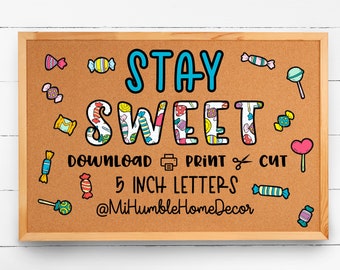 STAY
SWEET
DOWNLOAD PRINT CUT
5 INCH LETTERS
@MiHumbleHomeDecor